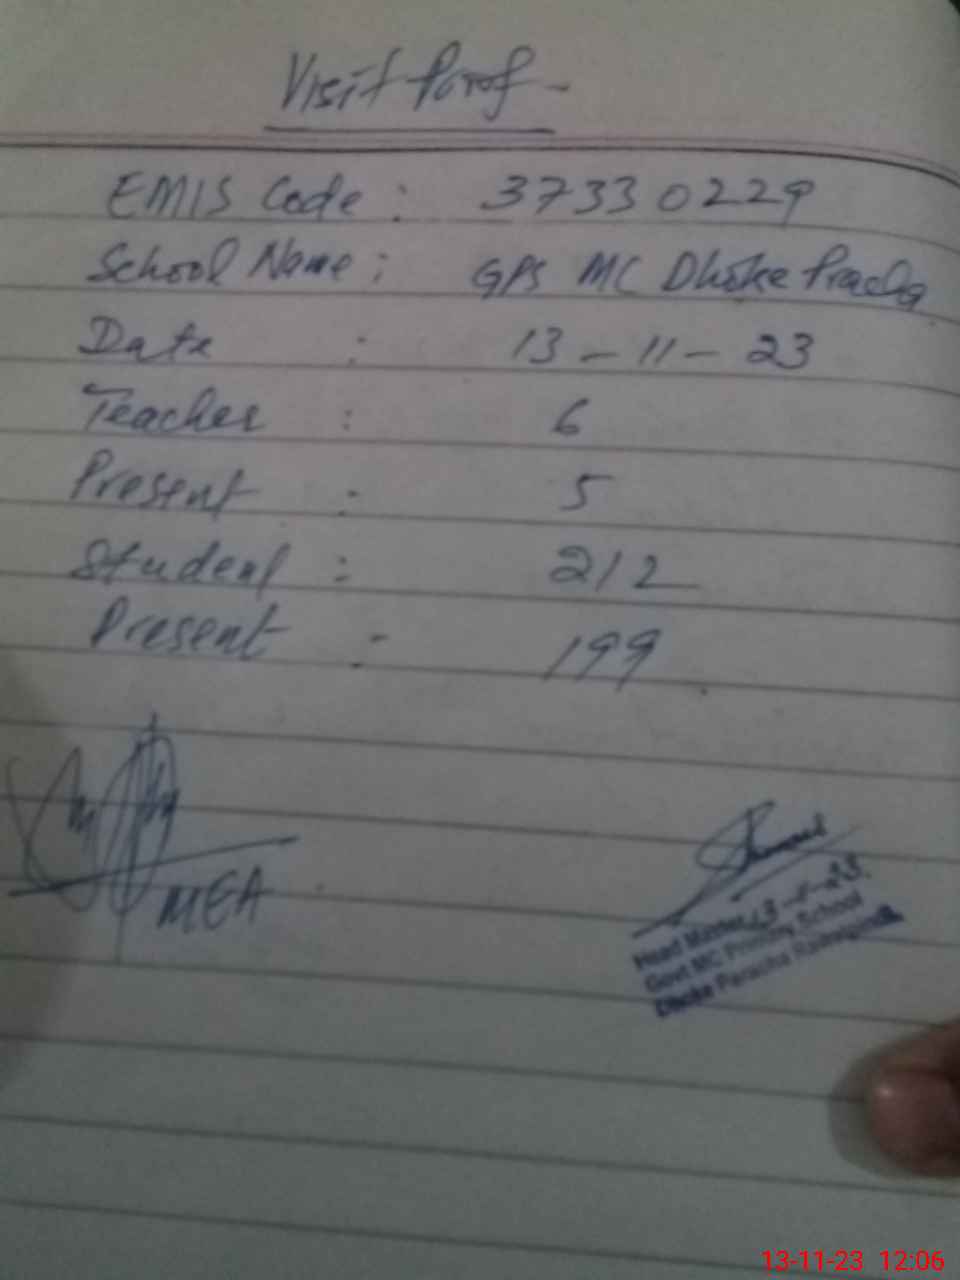 Visit Porof -
EMIS Code : 37330229
School Name : GPS MC Dhoke Pracha
Date : 13 - 11 - 23
Teacher : 6
Present : 5
Student : 212
Present - 199
MEA
13-11-23
Head Master
Govt MC Primary School
Dhoke Paracha Rawalpindi
13-11-23 12:06